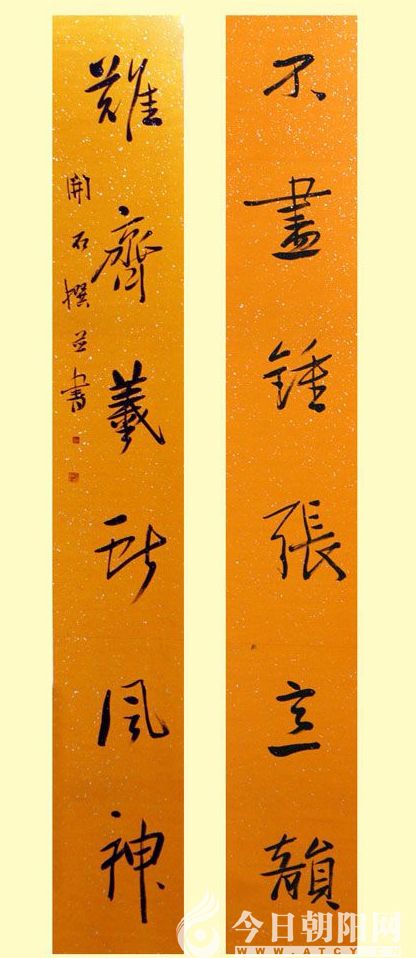 不盡鍾張意韻
難齊羲獻風神
開石撰並書
今日朝阳网
WWW.ATCY